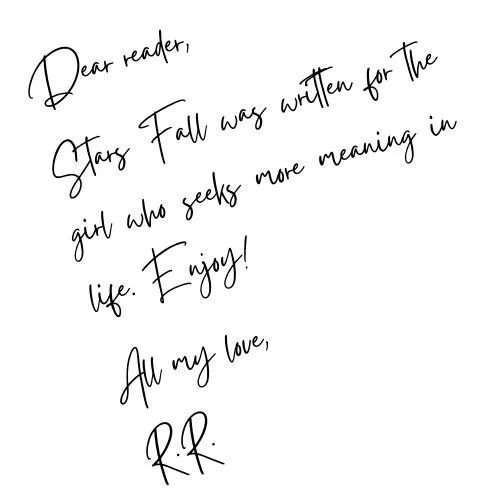 Dear reader,
Stars Fall was written for the
girl who seeks more meaning in
life. Enjoy!
All my love,
R.R.